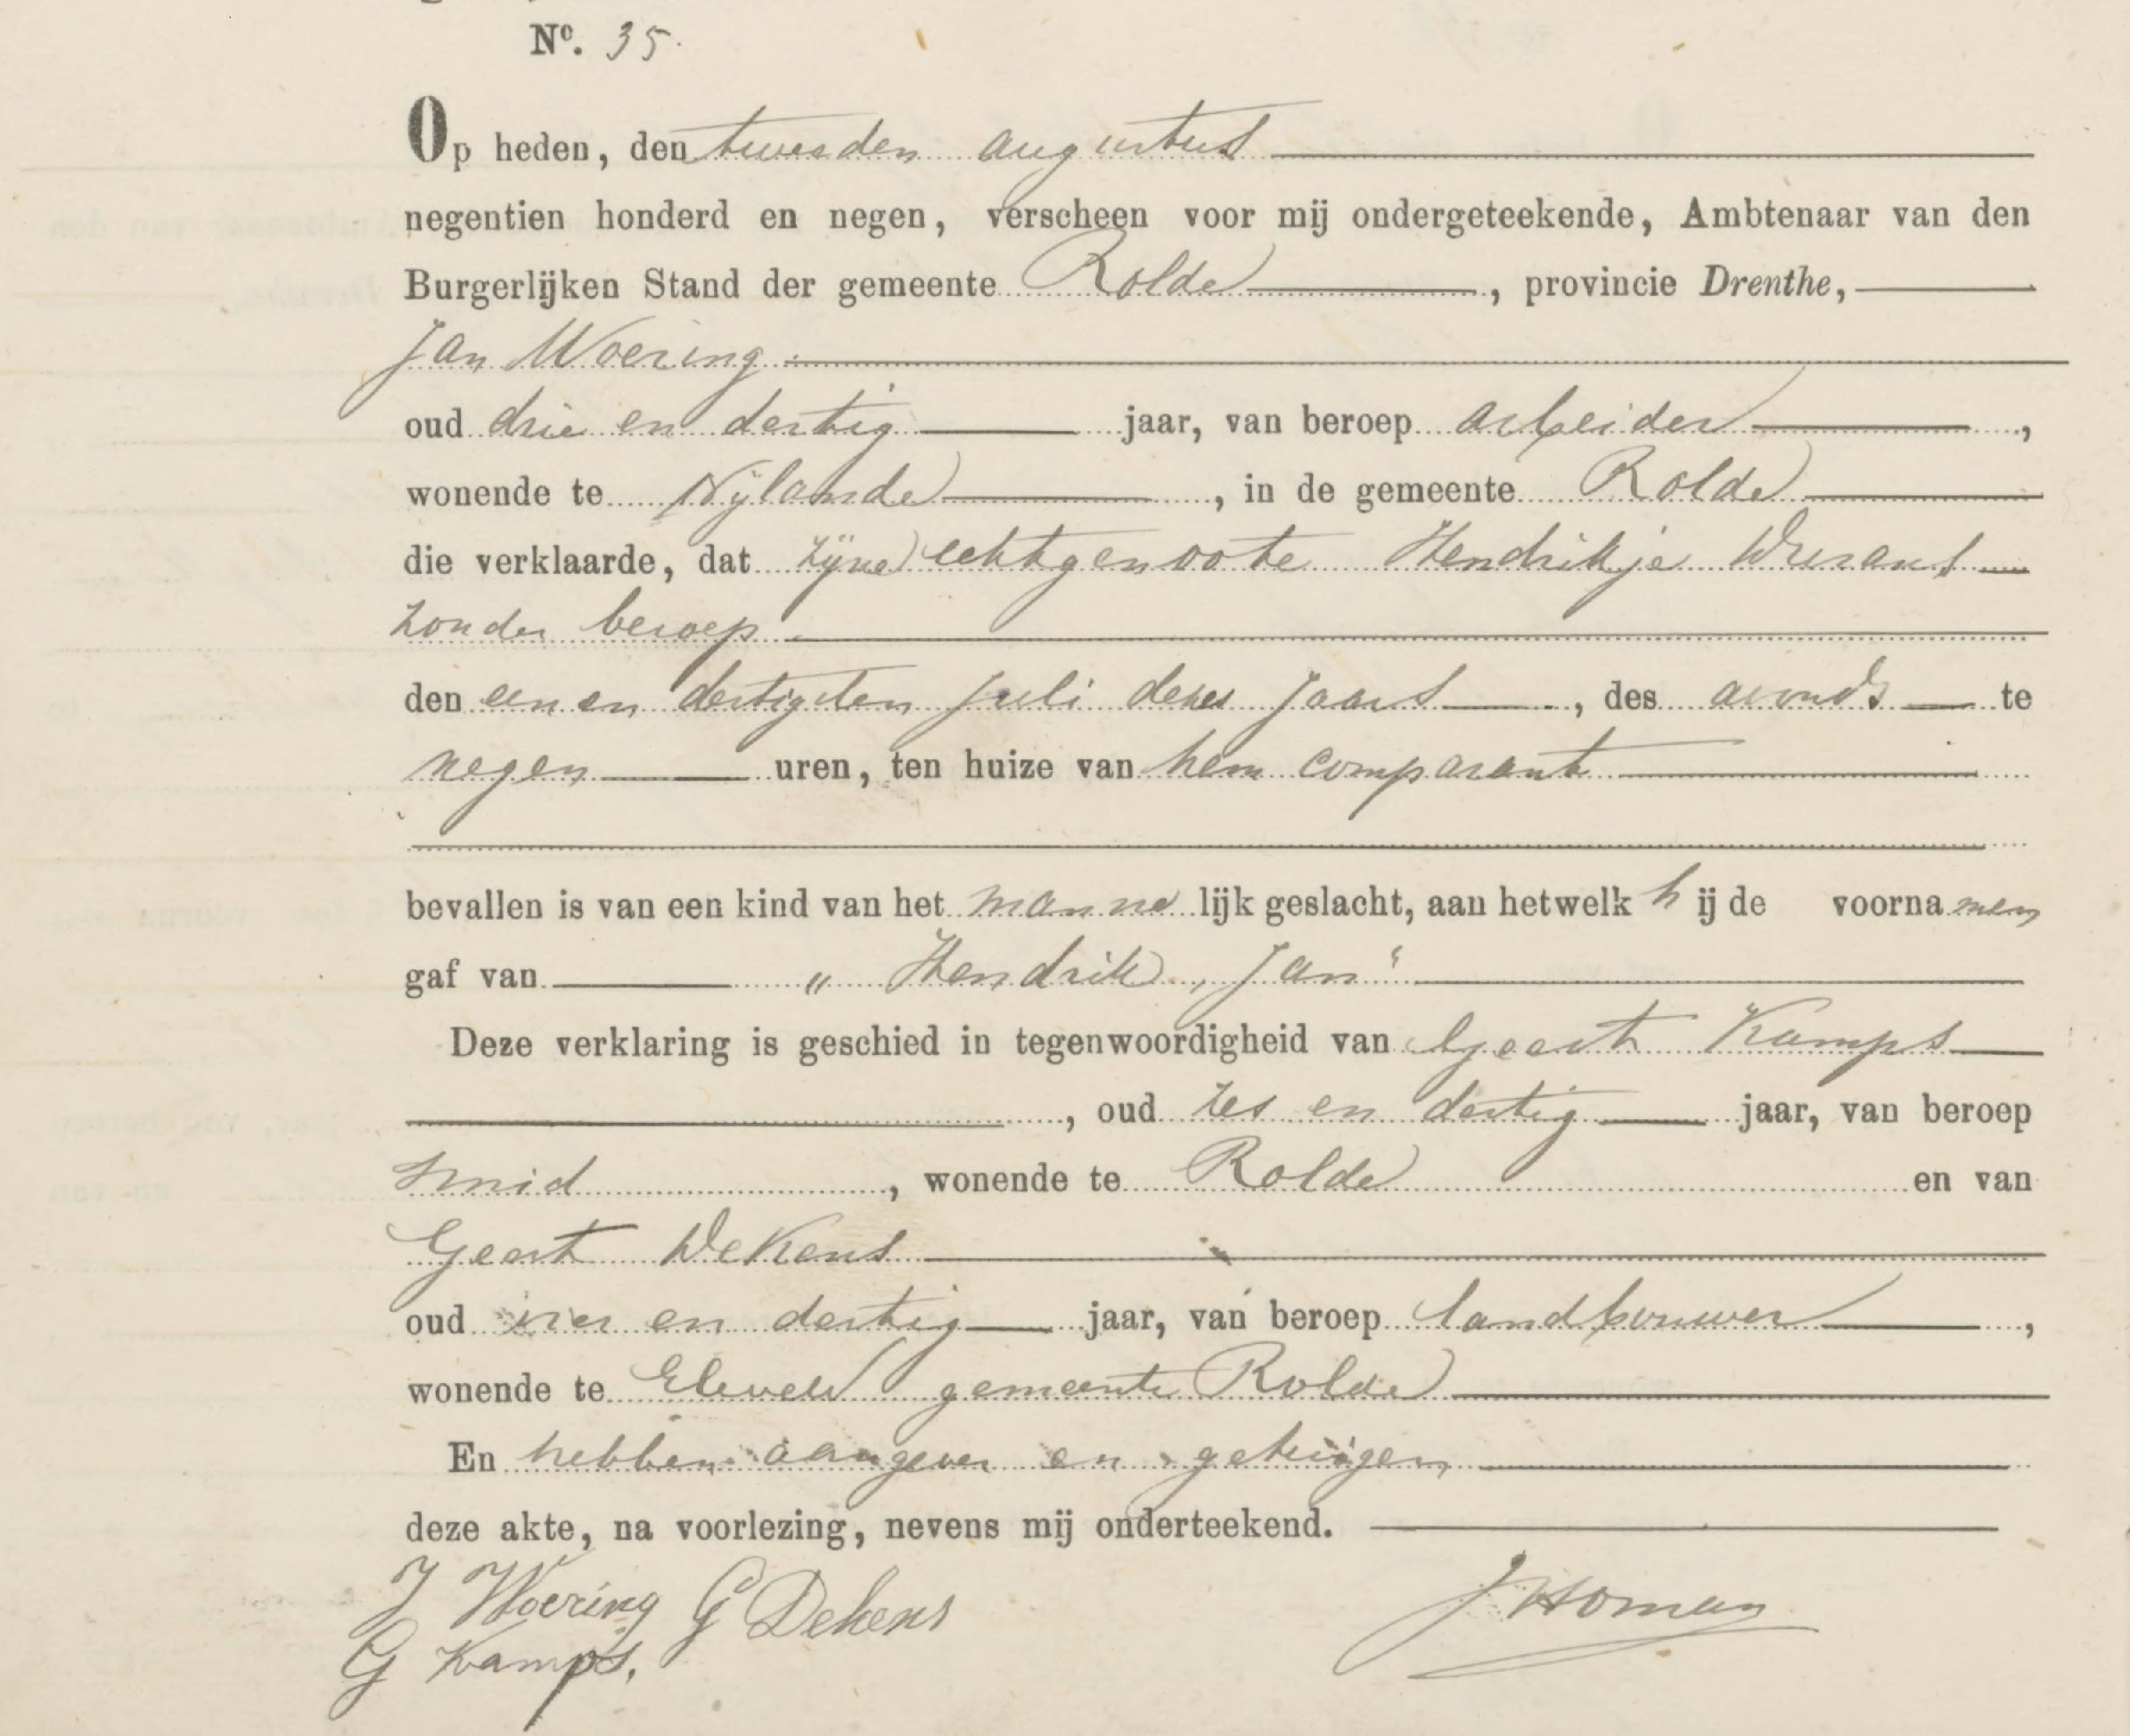 No. 35.
Op heden, den tweeden augustus
negentien honderd en negen, verscheen voor mij ondergeteekende, Ambtenaar van den
Burgerlijken Stand der gemeente Rolde, provincie Drenthe,
Jan Woering
oud drie en dertig jaar, van beroep arbeider,
wonende te Nijlande, in de gemeente Rolde
die verklaarde, dat zijne echtgenoote Hendrikje
zonder beroep
den een en dertigsten juli dezes jaars, des avonds te
negen uren, ten huize van hem comparant
bevallen is van een kind van het mannelijk geslacht, aan hetwelk hij de voornamen
gaf van „Hendrik, Jan“
Deze verklaring is geschied in tegenwoordigheid van Geert Kamps
, oud zes en dertig jaar, van beroep
smid, wonende te Rolde en van
Geert Dekens
oud vier en dertig jaar, van beroep landbouwer,
wonende te Eleveld gemeente Rolde
En hebben aangever en getuigen
deze akte, na voorlezing, nevens mij onderteekend.
J Woering G Dekens JHoman
G Kamps.